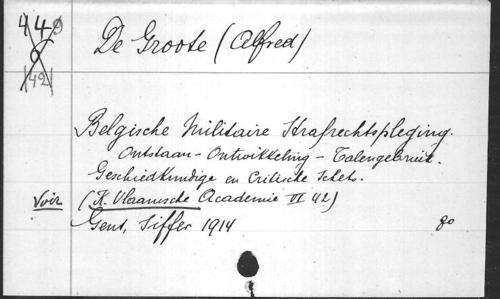 449
(42)
De Groote (Alfred)
Belgische Militaire Strafrechtspleging.
Ontstaan - Ontwikkeling - Talengebruik.
Geschiedkundige en Critische Schets.
Voir (K. Vlaamsche Academie VI 42)
Gent, Siffer 1914 8o